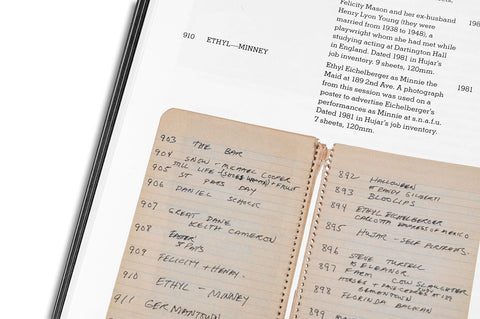 Felicity Mason and her ex-husband
Henry Lyon Young (they were
married from 1938 to 1948), a
playwright whom she had met while
studying acting at Dartington Hall
in England. Dated 1981 in Hujar's
job inventory. 9 sheets, 120mm.
198
910 ETHYL—MINNEY
Ethyl Eichelberger as Minnie the
Maid at 189 2nd Ave. A photograph
from this session was used on a
poster to advertise Eichelberger's
performances as Minnie at s.n.a.f.u.
Dated 1981 in Hujar's job inventory.
7 sheets, 120mm.
1981
903 THE BAR
904 SNOW - MICHAEL COOPER
905 STILL LIFE + FRUIT
ST PATS DAY
906 DANIEL
907 GREAT DANE
KEITH CAMERON
908 EASTER
ST PATS
909 FELICITY + HENRY.
910 ETHYL - MINNEY
911 GERMANTOWN
892 HALLOWEEN
893 BLOOLIPS
894 ETHYL EICHELBERGER
CARLOTTA EMPRESS OF MEXICO
895 HUJAR - SELF PORTRAITS.
896 STEVE TURTELL
& ELEANOR
897 FARM COW SLAUGHTER
HORSES + DANCERS AT 189
GERMANTOWN
898 FLORINDA
899